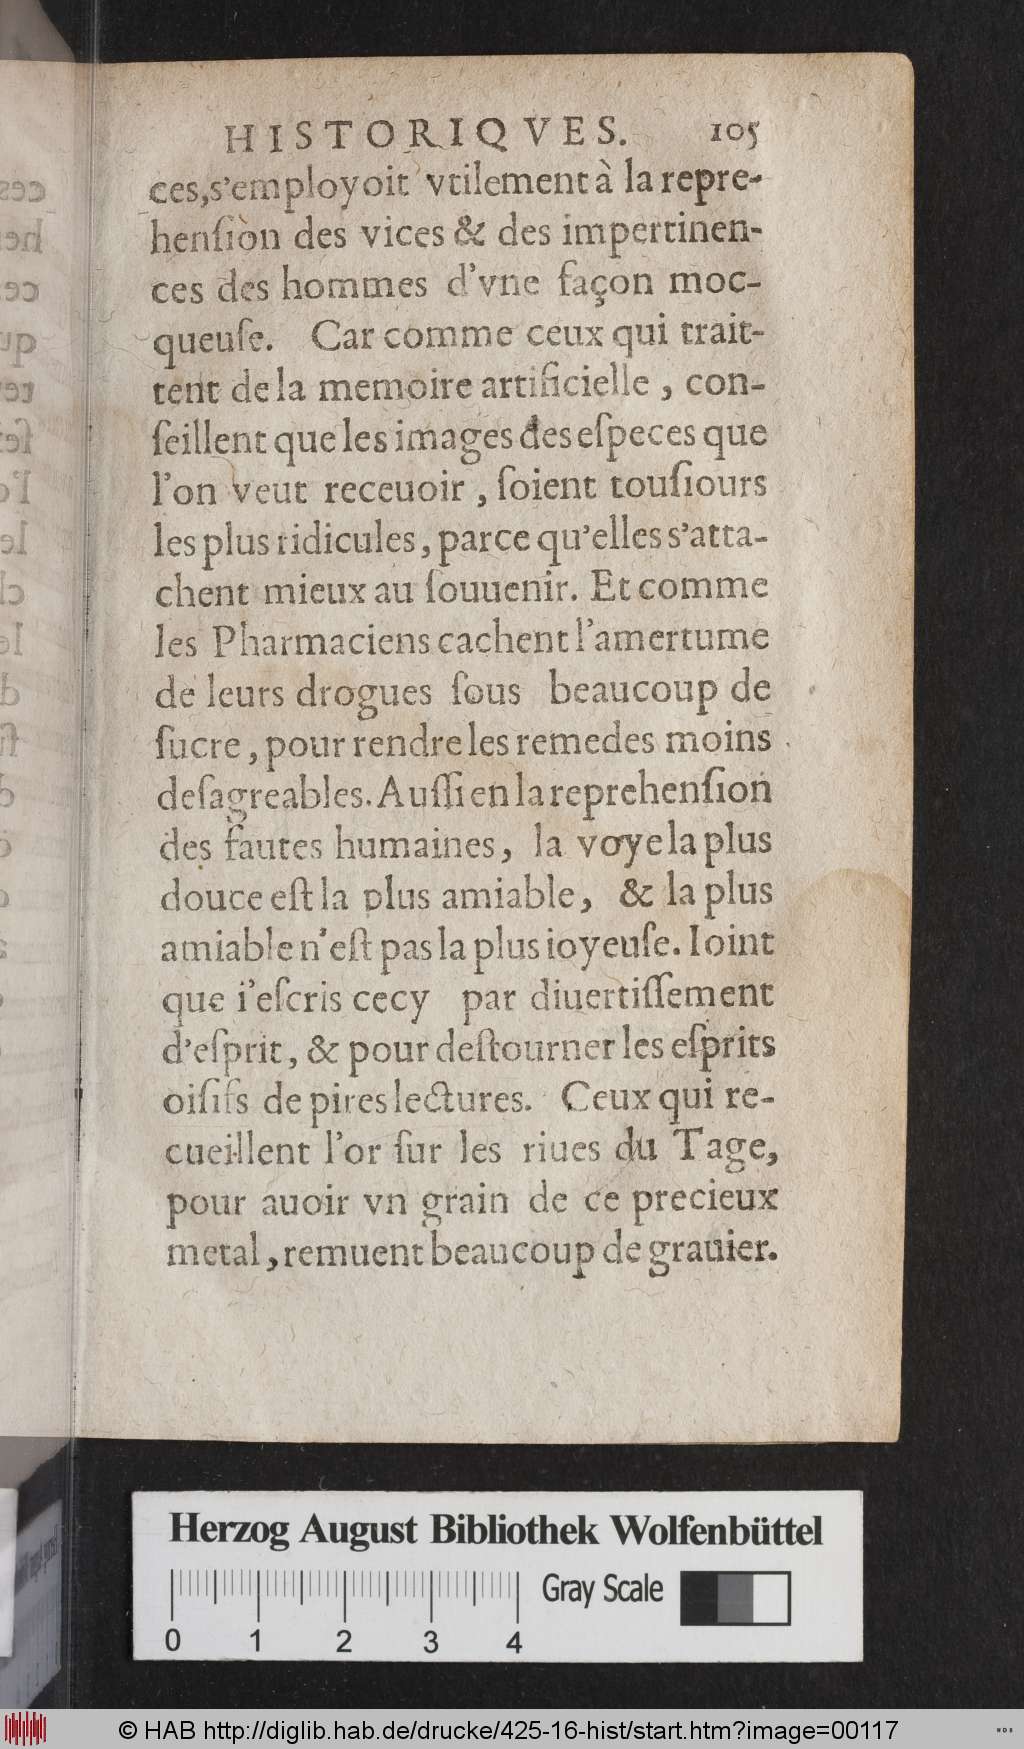 HISTORIQVES. 105
ces,s'employoit vtilement à la repre-
henſion des vices & des impertinen-
ces des hommes d'vne façon moc-
queuſe. Car comme ceux qui trait-
tent de la memoire artificielle, con-
ſeillent que les images des eſpeces que
l'on veut receuoir, ſoient touſiours
les plus ridicules, parce qu'elles s'atta-
chent mieux au ſouuenir. Et comme
les Pharmaciens cachent l'amertume
de leurs drogues ſous beaucoup de
ſucre, pour rendre les remedes moins
deſagreables. Auſſi en la reprehenſion
des fautes humaines, la voye la plus
douce eſt la plus amiable, & la plus
amiable n'eſt pas la plus ioyeuſe. Ioint
que i'eſcris cecy par diuertiſſement
d'eſprit, & pour deſtourner les eſprits
oiſifs de pires lectures. Ceux qui re-
cueillent l'or ſur les riues du Tage,
pour auoir vn grain de ce precieux
metal, remuent beaucoup de grauier.
Herzog August Bibliothek Wolfenbüttel
Gray Scale
0 1 2 3 4
© HAB http://diglib.hab.de/drucke/425-16-hist/start.htm?image=00117